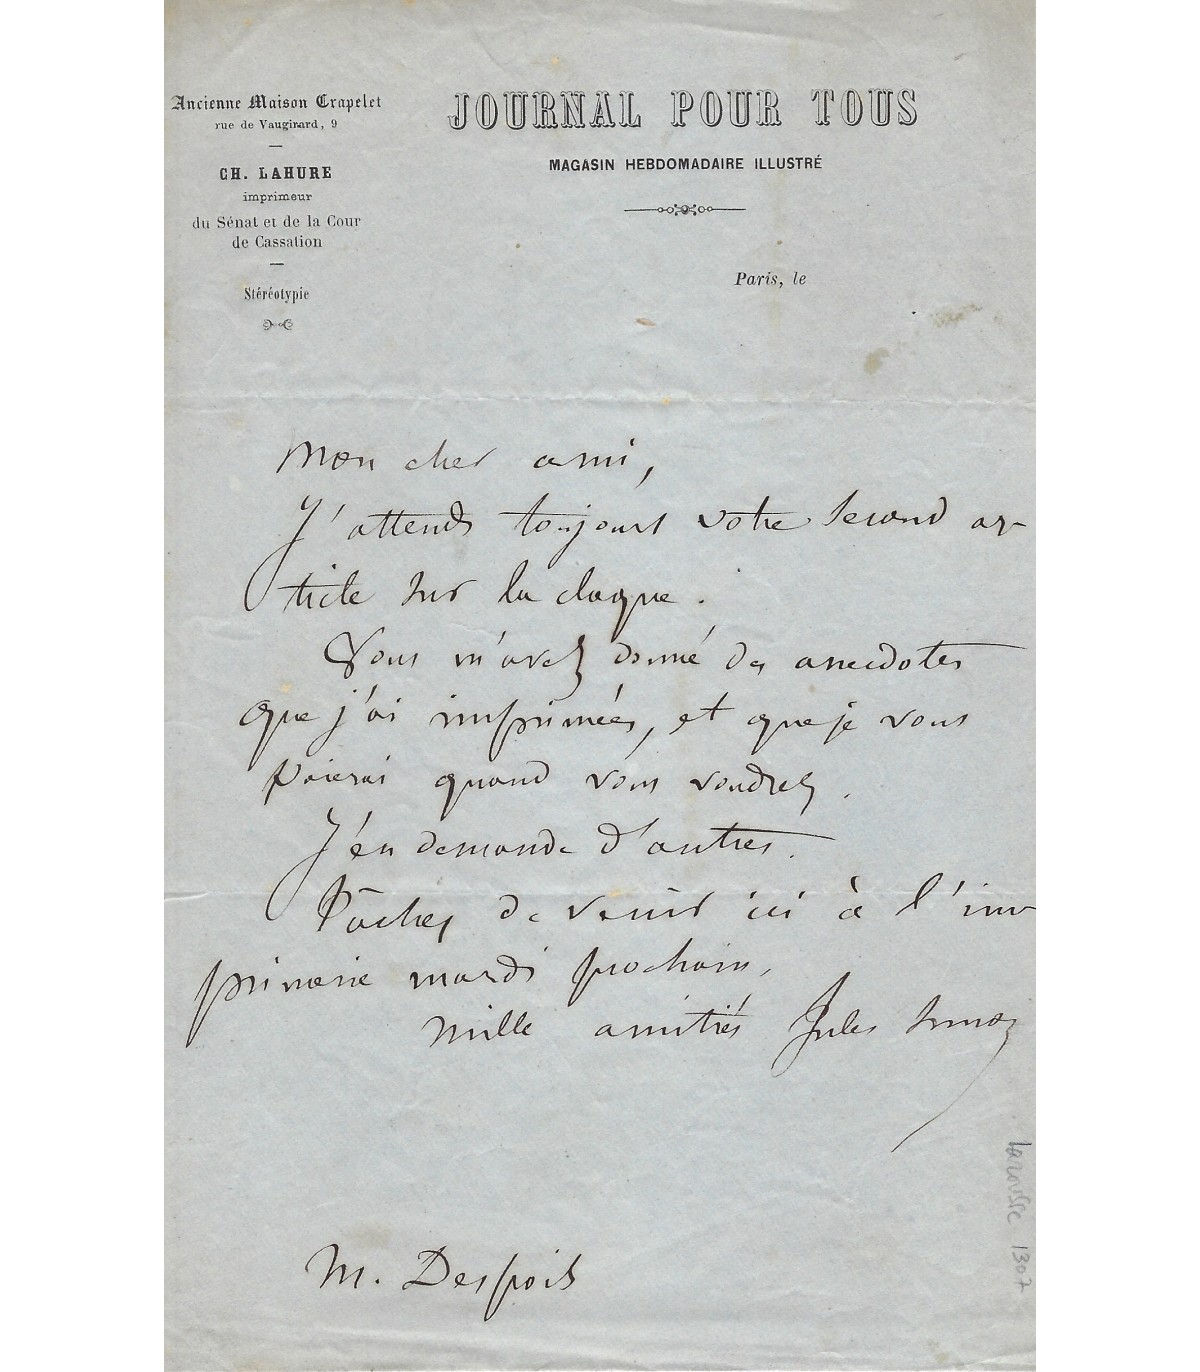 Ancienne Maison Crapelet
rue de Vaugirard, 9
CH. LAHURE
imprimeur
du Sénat et de la Cour
de Cassation
Stéréotypie
JOURNAL POUR TOUS
MAGASIN HEBDOMADAIRE ILLUSTRÉ
Paris, le
Mon cher ami,
J'attends toujours votre second ar-
ticle sur la claque.
Vous m'avez donné des anecdotes
que j'ai imprimées, et que je vous
paierai quand vous voudrez.
J'en demande d'autres.
Tâchez de venir ici à l'im-
primerie mardi prochain,
mille amitiés Jules Simon
M. Despois
Larousse 1307